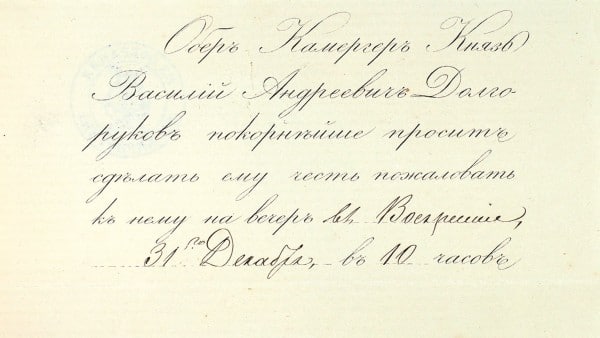 Оберъ Камергеръ Князь
Василій Андреевичъ Долго-
руковъ покорнѣйше проситъ
сдѣлать ему честь пожаловать
къ нему на вечеръ въ Воскресеніе,
31го Декабря, въ 10 часовъ